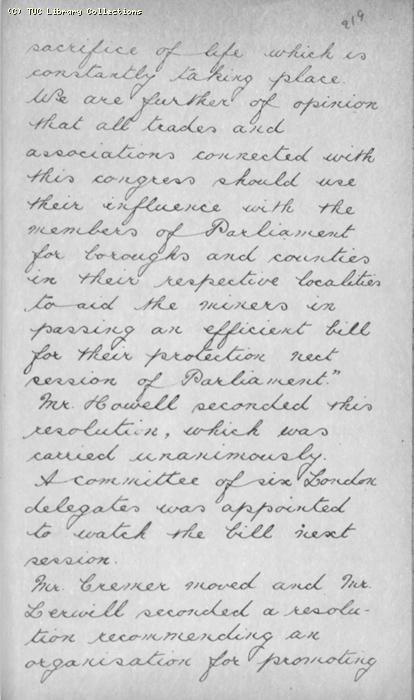 (C) TUC Library Collections
219
sacrifice of life which is
constantly taking place.
We are further of opinion
that all trades and
associations connected with
this congress should use
their influence with the
members of Parliament
for boroughs and counties
in their respective localities
to aid the miners in
passing an efficient bill
for their protection next
session of Parliament."
Mr. Howell seconded this
resolution, which was
carried unanimously.
A committee of six London
delegates was appointed
to watch the bill next
session.
Mr. Cremer moved and Mr.
Lerwill seconded a resolu-
tion recommending an
organisation for promoting